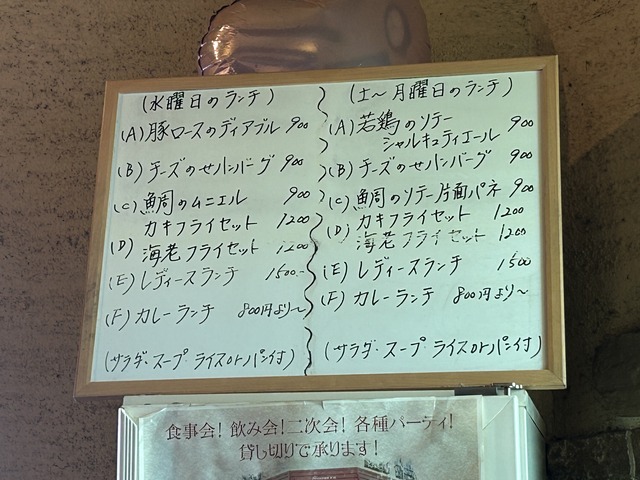 (水曜日のランチ)
(A) 豚ロースのディアブル 900
(B) チーズのせハンバーグ 900
(C) 鯛のムニエル 900
カキフライセット 1200
(D)
海老フライセット 1200
(E) レディースランチ 1500.-
(F) カレーランチ 800円より〜
(サラダ・スープ ライスorパン付)
(土〜月曜日のランチ)
(A) 若鶏のソテー
シャルキュティエール 900
(B) チーズのせハンバーグ 900
(C) 鯛のソテー片面パネ 900
カキフライセット 1200
(D)
海老フライセット 1200
(E) レディースランチ 1500
(F) カレーランチ 800円より〜
(サラダ・スープ ライスorパン付)
食事会!飲み会!二次会!各種パーティ!
貸し切りで承ります!